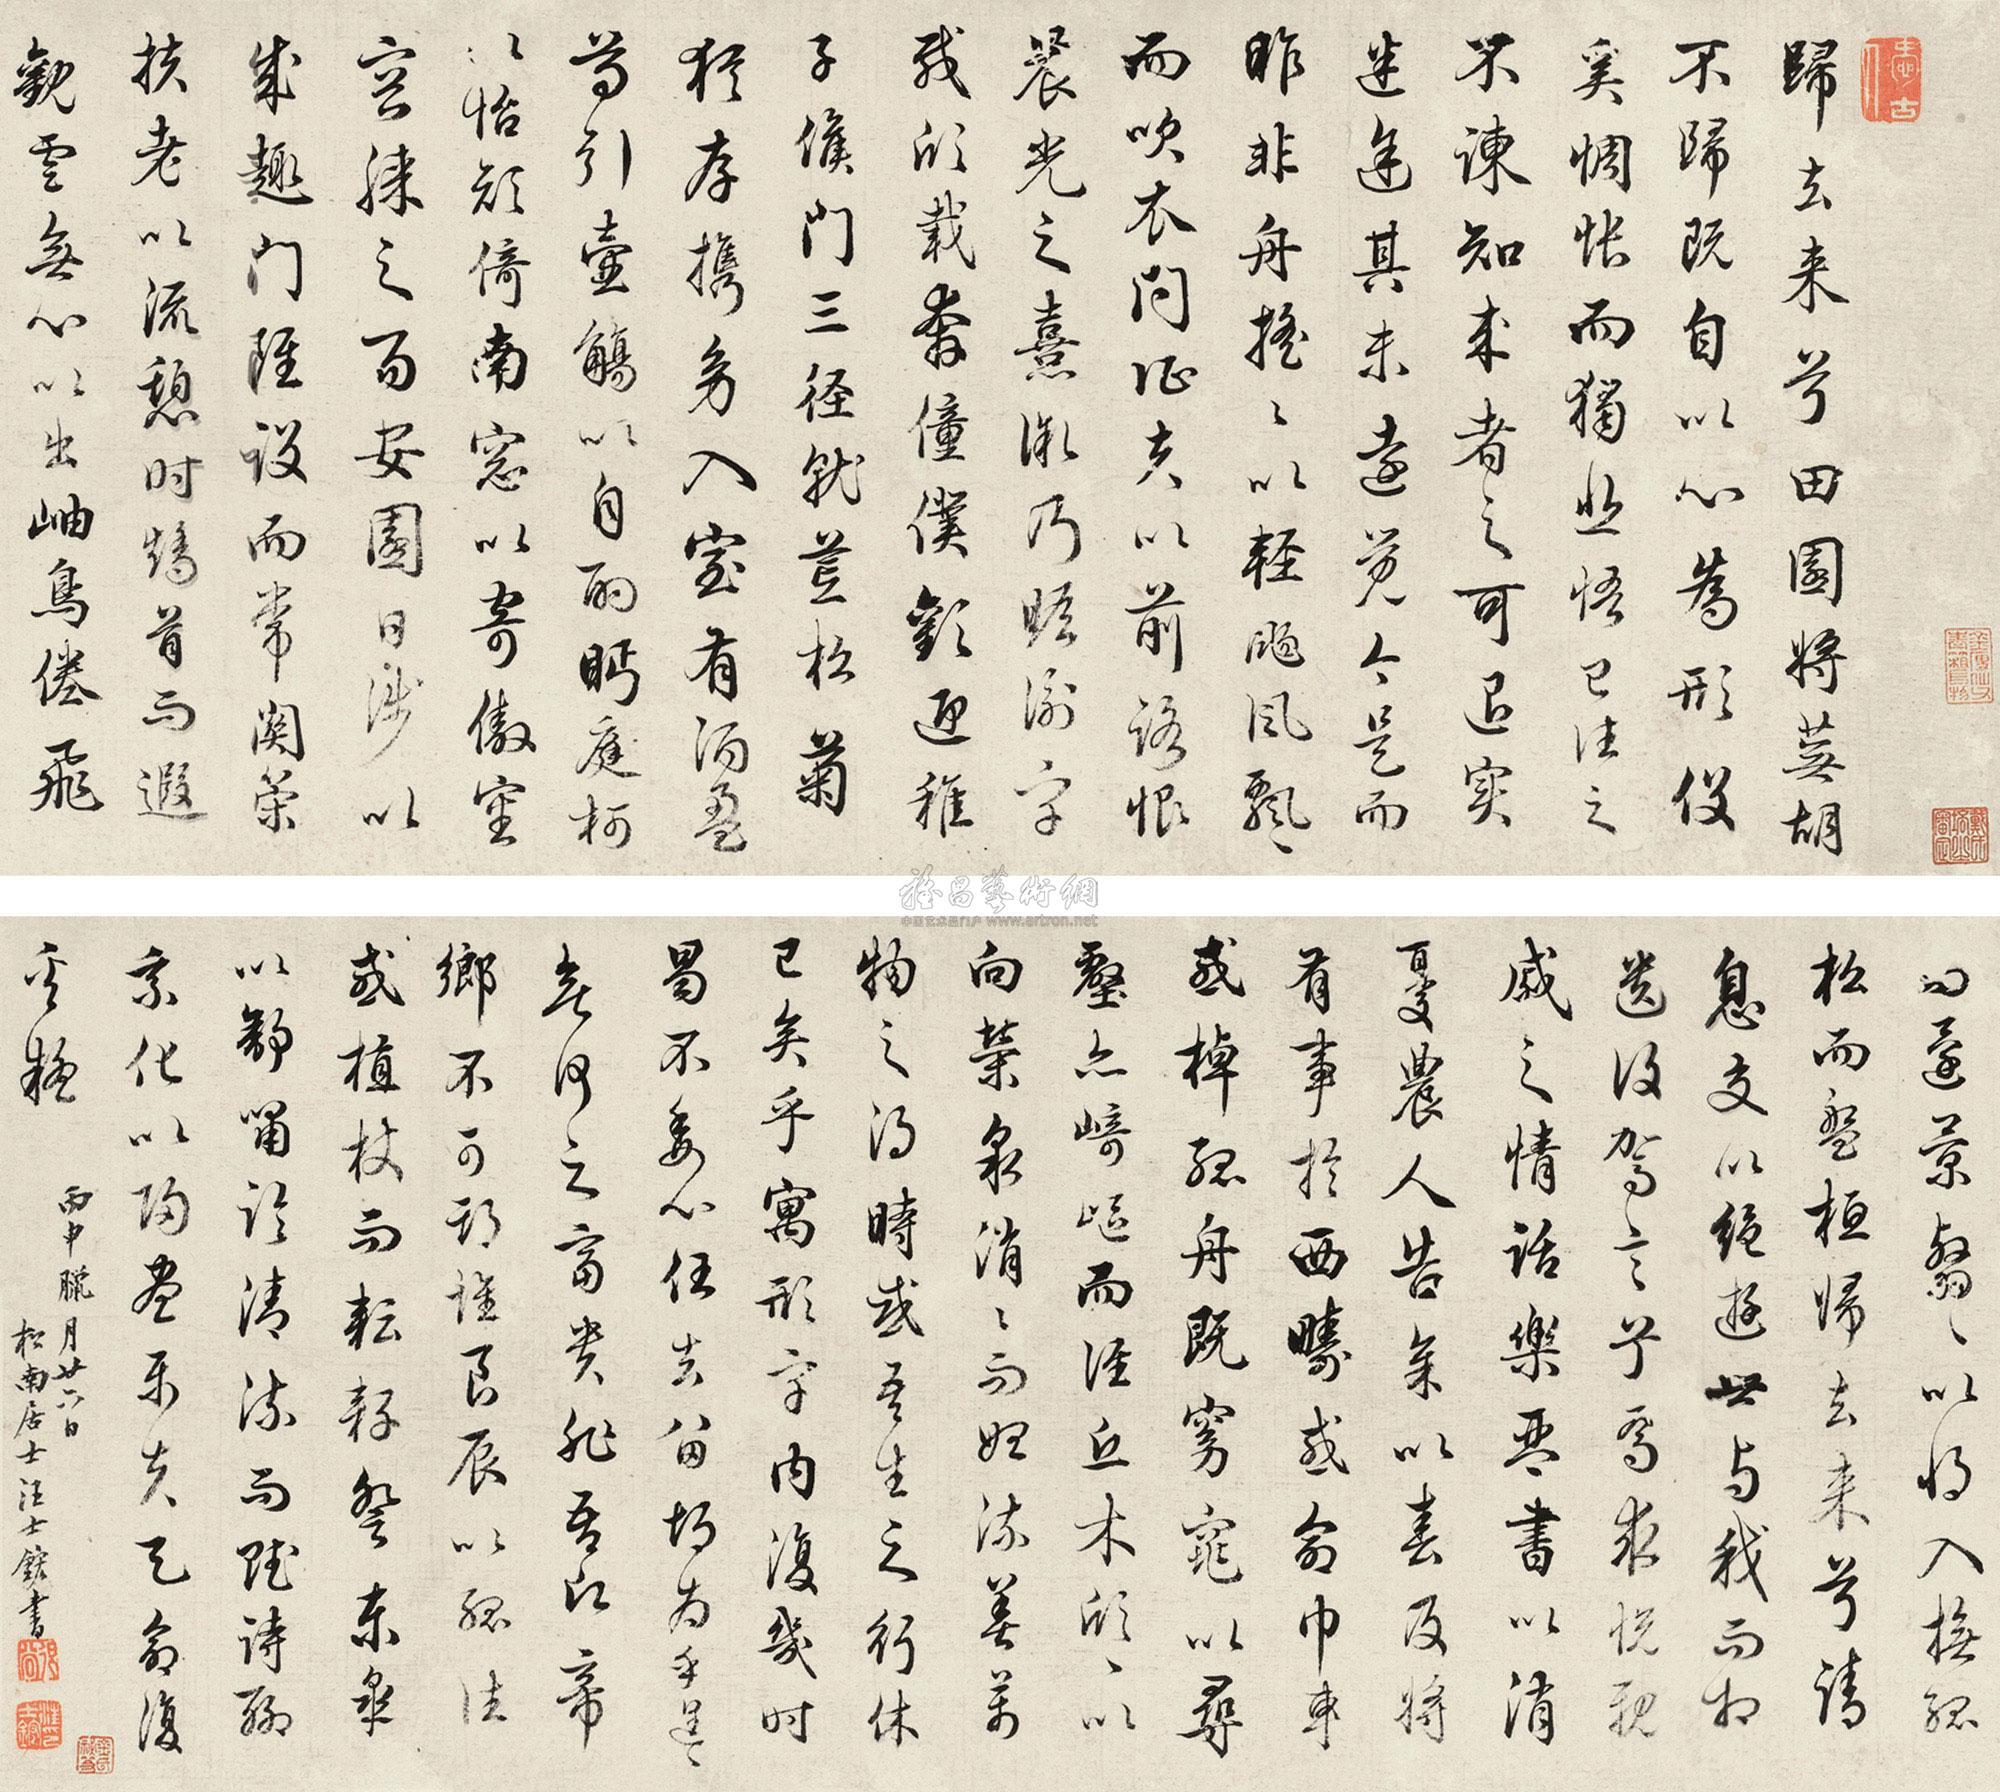 歸去来兮田園將蕪胡
不歸既自以心為形役
奚惆悵而獨悲悟已往之
不諫知来者之可追實
迷途其未遠覺今是而
昨非舟搖〻以輕颺風飄〻
而吹衣問征夫以前路恨
晨光之熹微乃瞻衡宇
載欣載奔僮僕歡迎稚
子候門三径就荒松菊
猶存攜幼入室有酒盈
尊引壺觴以自酌眄庭柯
以怡顏倚南窓以寄傲審
容膝之易安園日涉以
成趣門雖設而常關策
扶老以流憩时矯首而遐
觀雲無心以出岫鳥倦飛
而還景翳〻以將入撫孤
松而盤桓歸去来兮請
息交以絕遊世与我而相
遺復駕言兮焉求悅親
戚之情話樂琴書以消
憂農人告余以春及將
有事於西疇或命巾車
或棹孤舟既窈窕以尋
壑亦崎嶇而經丘木欣〻以
向榮泉涓〻而始流善萬
物之得時感吾生之行休
已矣乎寓形宇内復幾时
曷不委心任去留胡為乎遑〻
何之富貴非吾願帝
鄉不可期懷良辰以孤往
或植杖而耘耔登東皋
以舒嘯臨清流而賦詩聊
乘化以歸盡樂夫天命復
奚疑
丙申臘月廿六日
松南居士汪士鋐書
雅昌藝術網
中国艺术品门户 www.artron.net